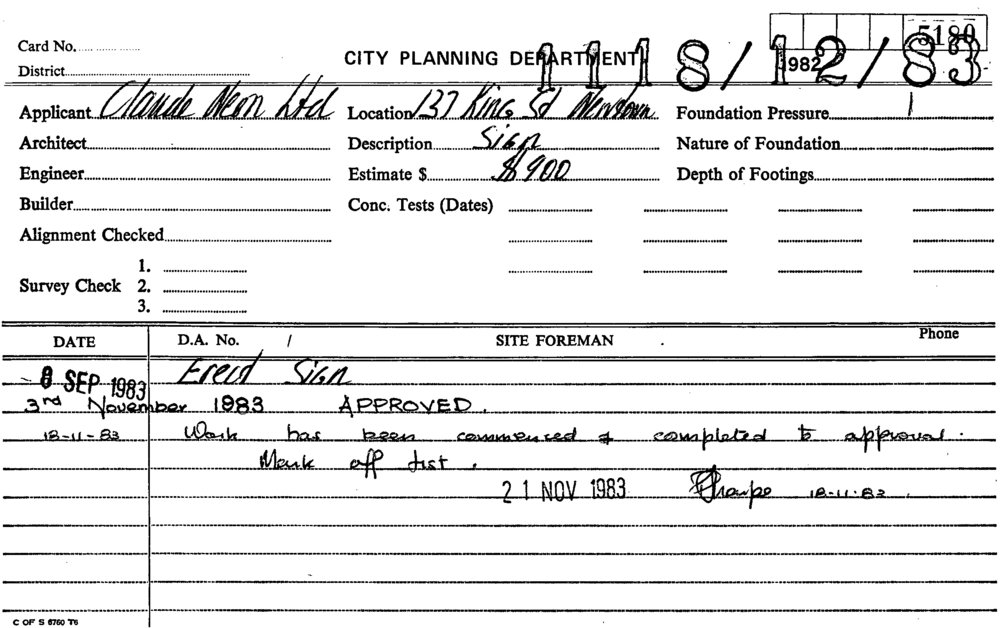 5180
Card No.
CITY PLANNING DEPARTMENT
1982
1118/12/83
District
Applicant Claude Neon Ltd Location 137 King St Newtown Foundation Pressure
Architect Description Sign Nature of Foundation
Engineer Estimate $ $900 Depth of Footings
Builder Conc. Tests (Dates)
Alignment Checked
1.
Survey Check 2.
3.
DATE D.A. No. / SITE FOREMAN Phone
8 SEP 1983 Erect Sign
3rd November 1983 APPROVED.
18-11-83 Work has been commenced & completed to approval.
Mark off list.
21 NOV 1983 Sharpe 18-11-83.
C OF S 6760 T6